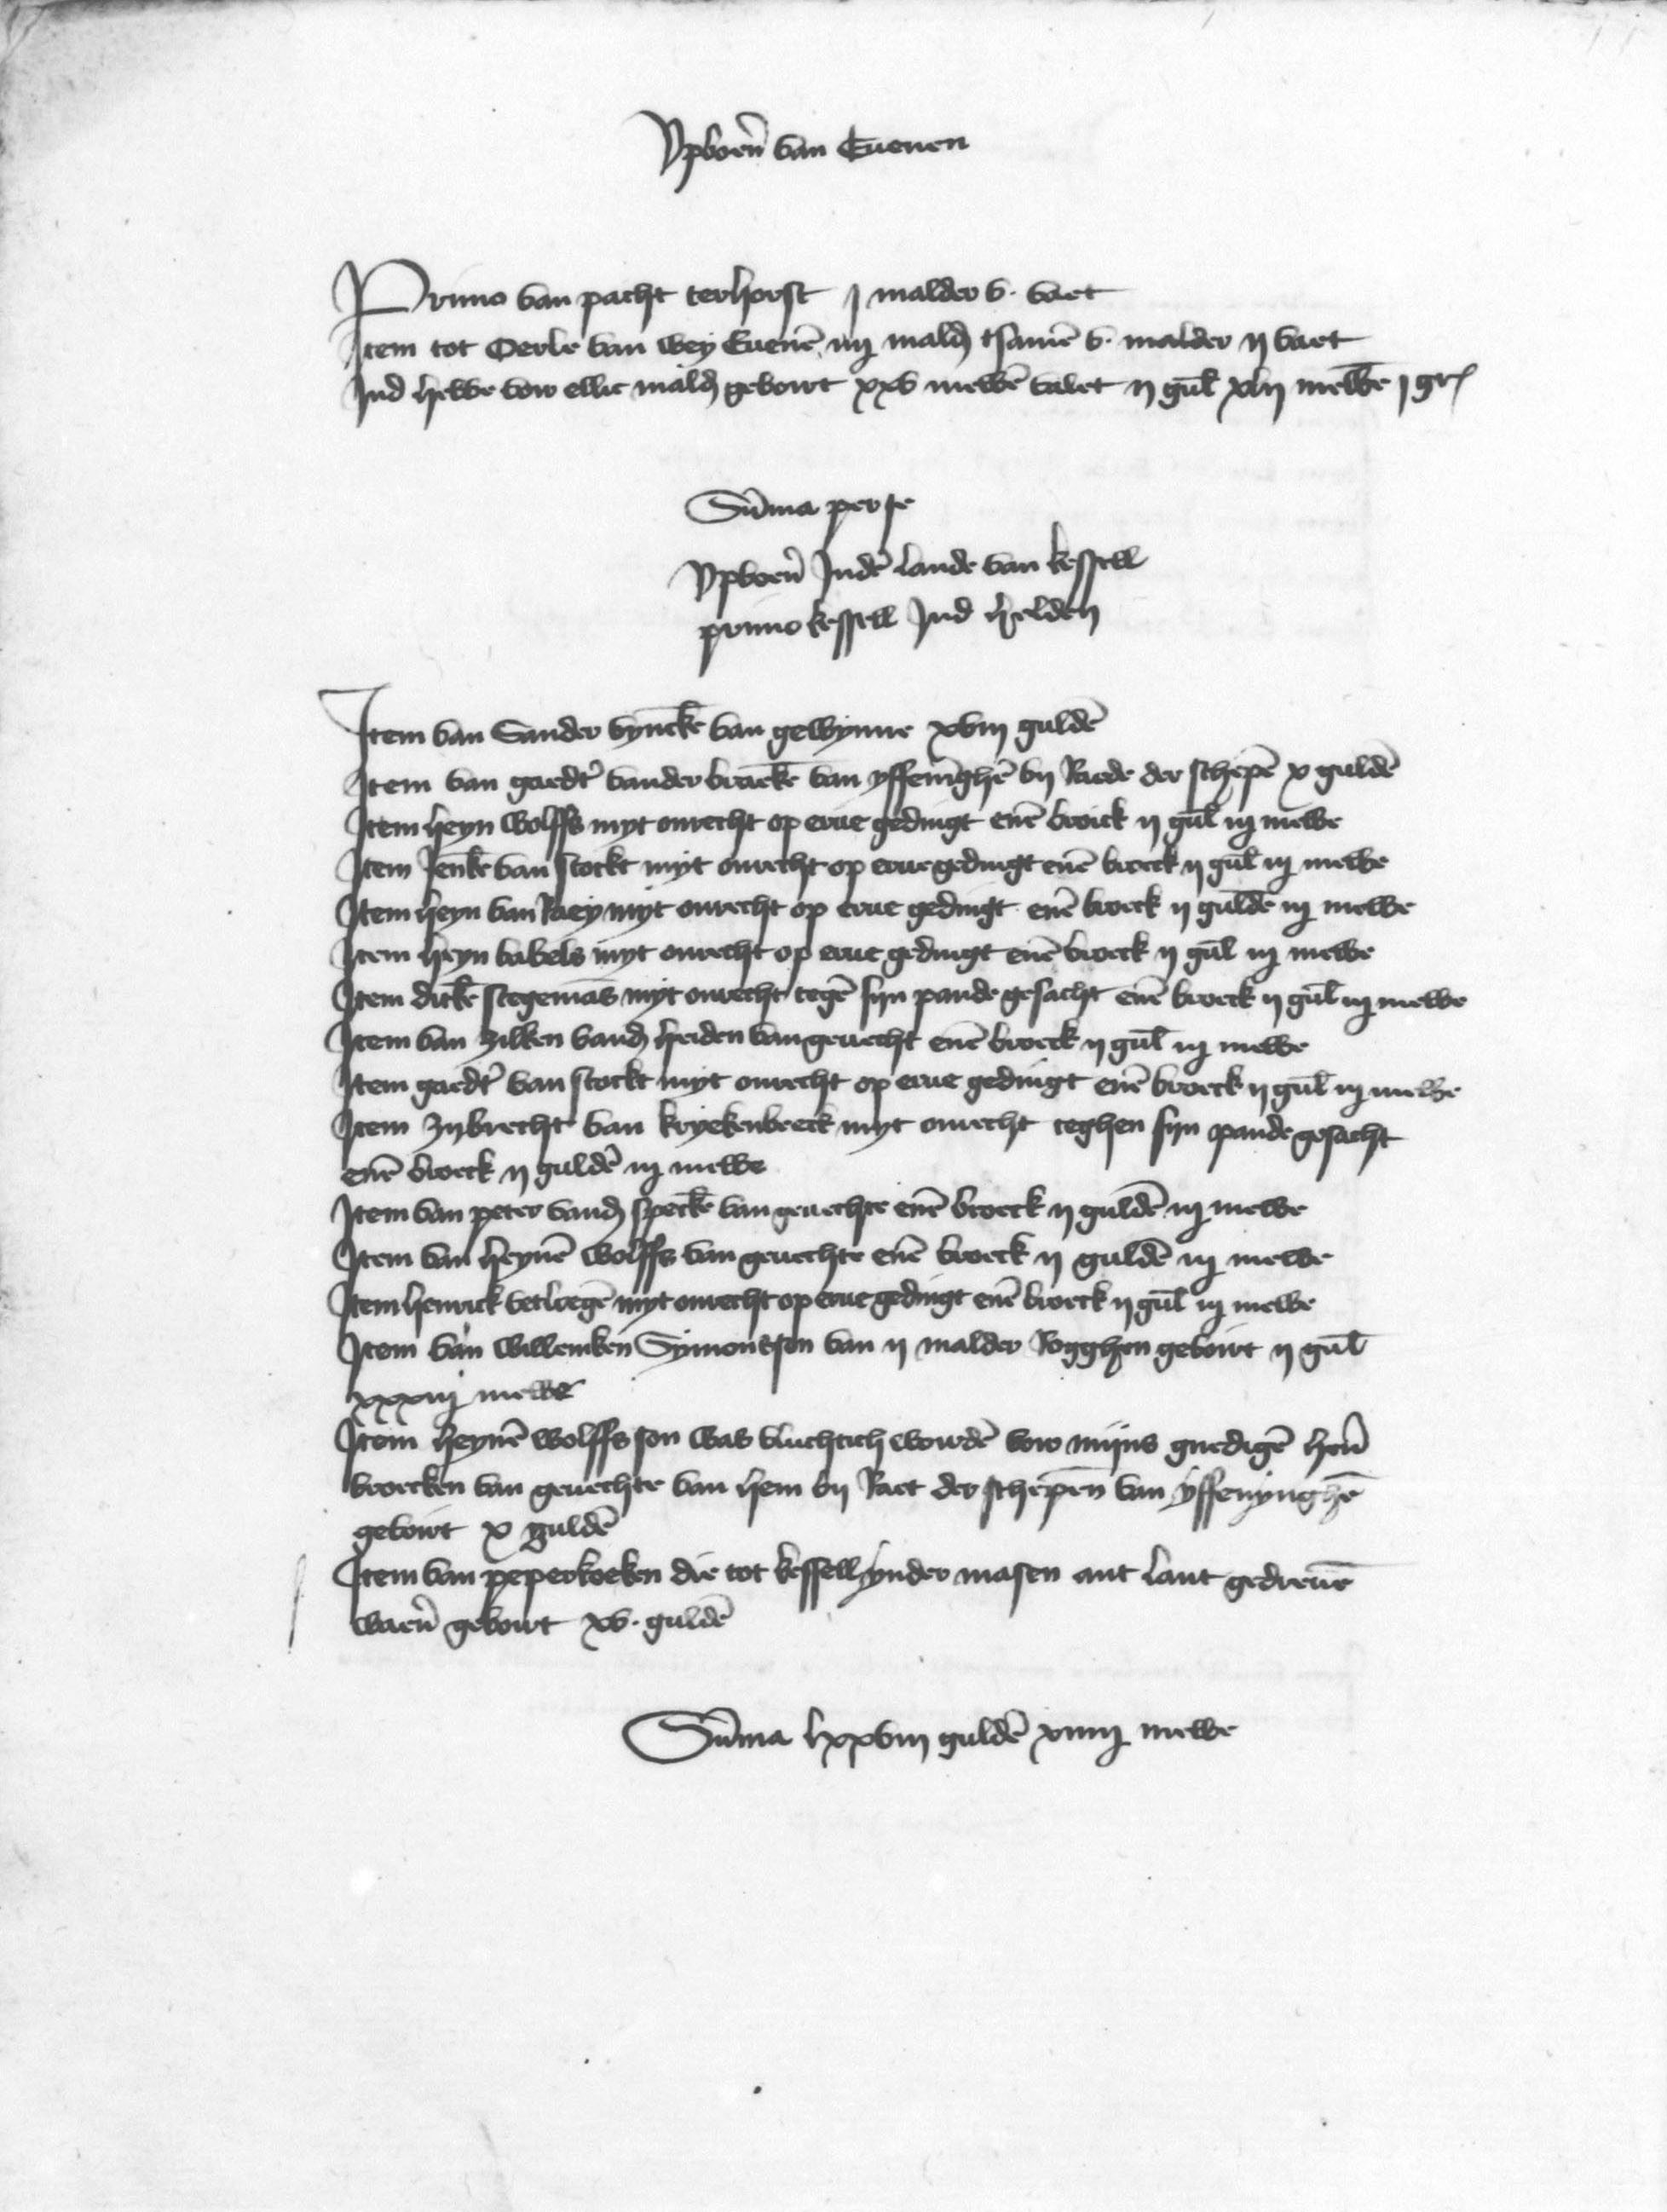 Vpboerñ van Euenen
Primo van pacht terhorst j malder v. vaet
Item tot Oerle van wey Euenē iiij mald tsamē v. malder ij vaet
Ind hebbe vor ellic mald geboirt xxv mewē valet ij gul xlij mewē j gr
Sum̄a per se
Vpboerñ Inde lande van kessell
primo kessell Ind helden
Item van Sander vynckē van gewynne xviij guldē
Item van gaedt vander braeckē van yffeninghē bij Raede der schepē x guldē
Item heyn wolffs myt onrecht op erue gedingt enē broick ij gul iij mewe
Item Jenkē van stockt myt onrecht op erue gedingt enē broeck ij gul iij mewe
Item heyn van Raey myt onrecht op erue gedingt enē broeck ij guldē iij mewe
Item heyn babels myt onrecht op erue gedingt enē broeck ij gul iij mewe
Item dirkē stegemās myt onrecht tegē sijn pande gesacht enē broeck ij gul iij mewe
Item van zilken vand heiden van geuecht enē broeck ij gul iij mewe
Item gaedt van stockt myt onrecht op erue gedingt enē broeck ij gul iij mewe
Item zijbrecht van kryekenbeeck myt onrecht teghen sijn pande gesacht
enē broeck ij guldē iij mewe
Item van peter vand speckē van geuechte enē broeck ij guldē iij mewe
Item van heynē wolffs van geuechte enē broeck ij guldē iij mewe
Item henrick vetloegē myt onrecht op erue gedingt enē broeck ij gul iij mewe
Item van willemken Symonsson van ij malder Rogghen geboirt ij gul
xxxiij mewe
Item heynē wolffs son was vluchtich wordē vor mijns gnedigē herñ
broecken van geuechte van hem bij Raet der schepen van yffenynghē
geboirt x guldē
Item van peperkoeken die tot kessell ynder masen ant lant gedreuē
waerñ geboirt xv. guldē
Sum̄a lxxviij guldē xiiij mewe